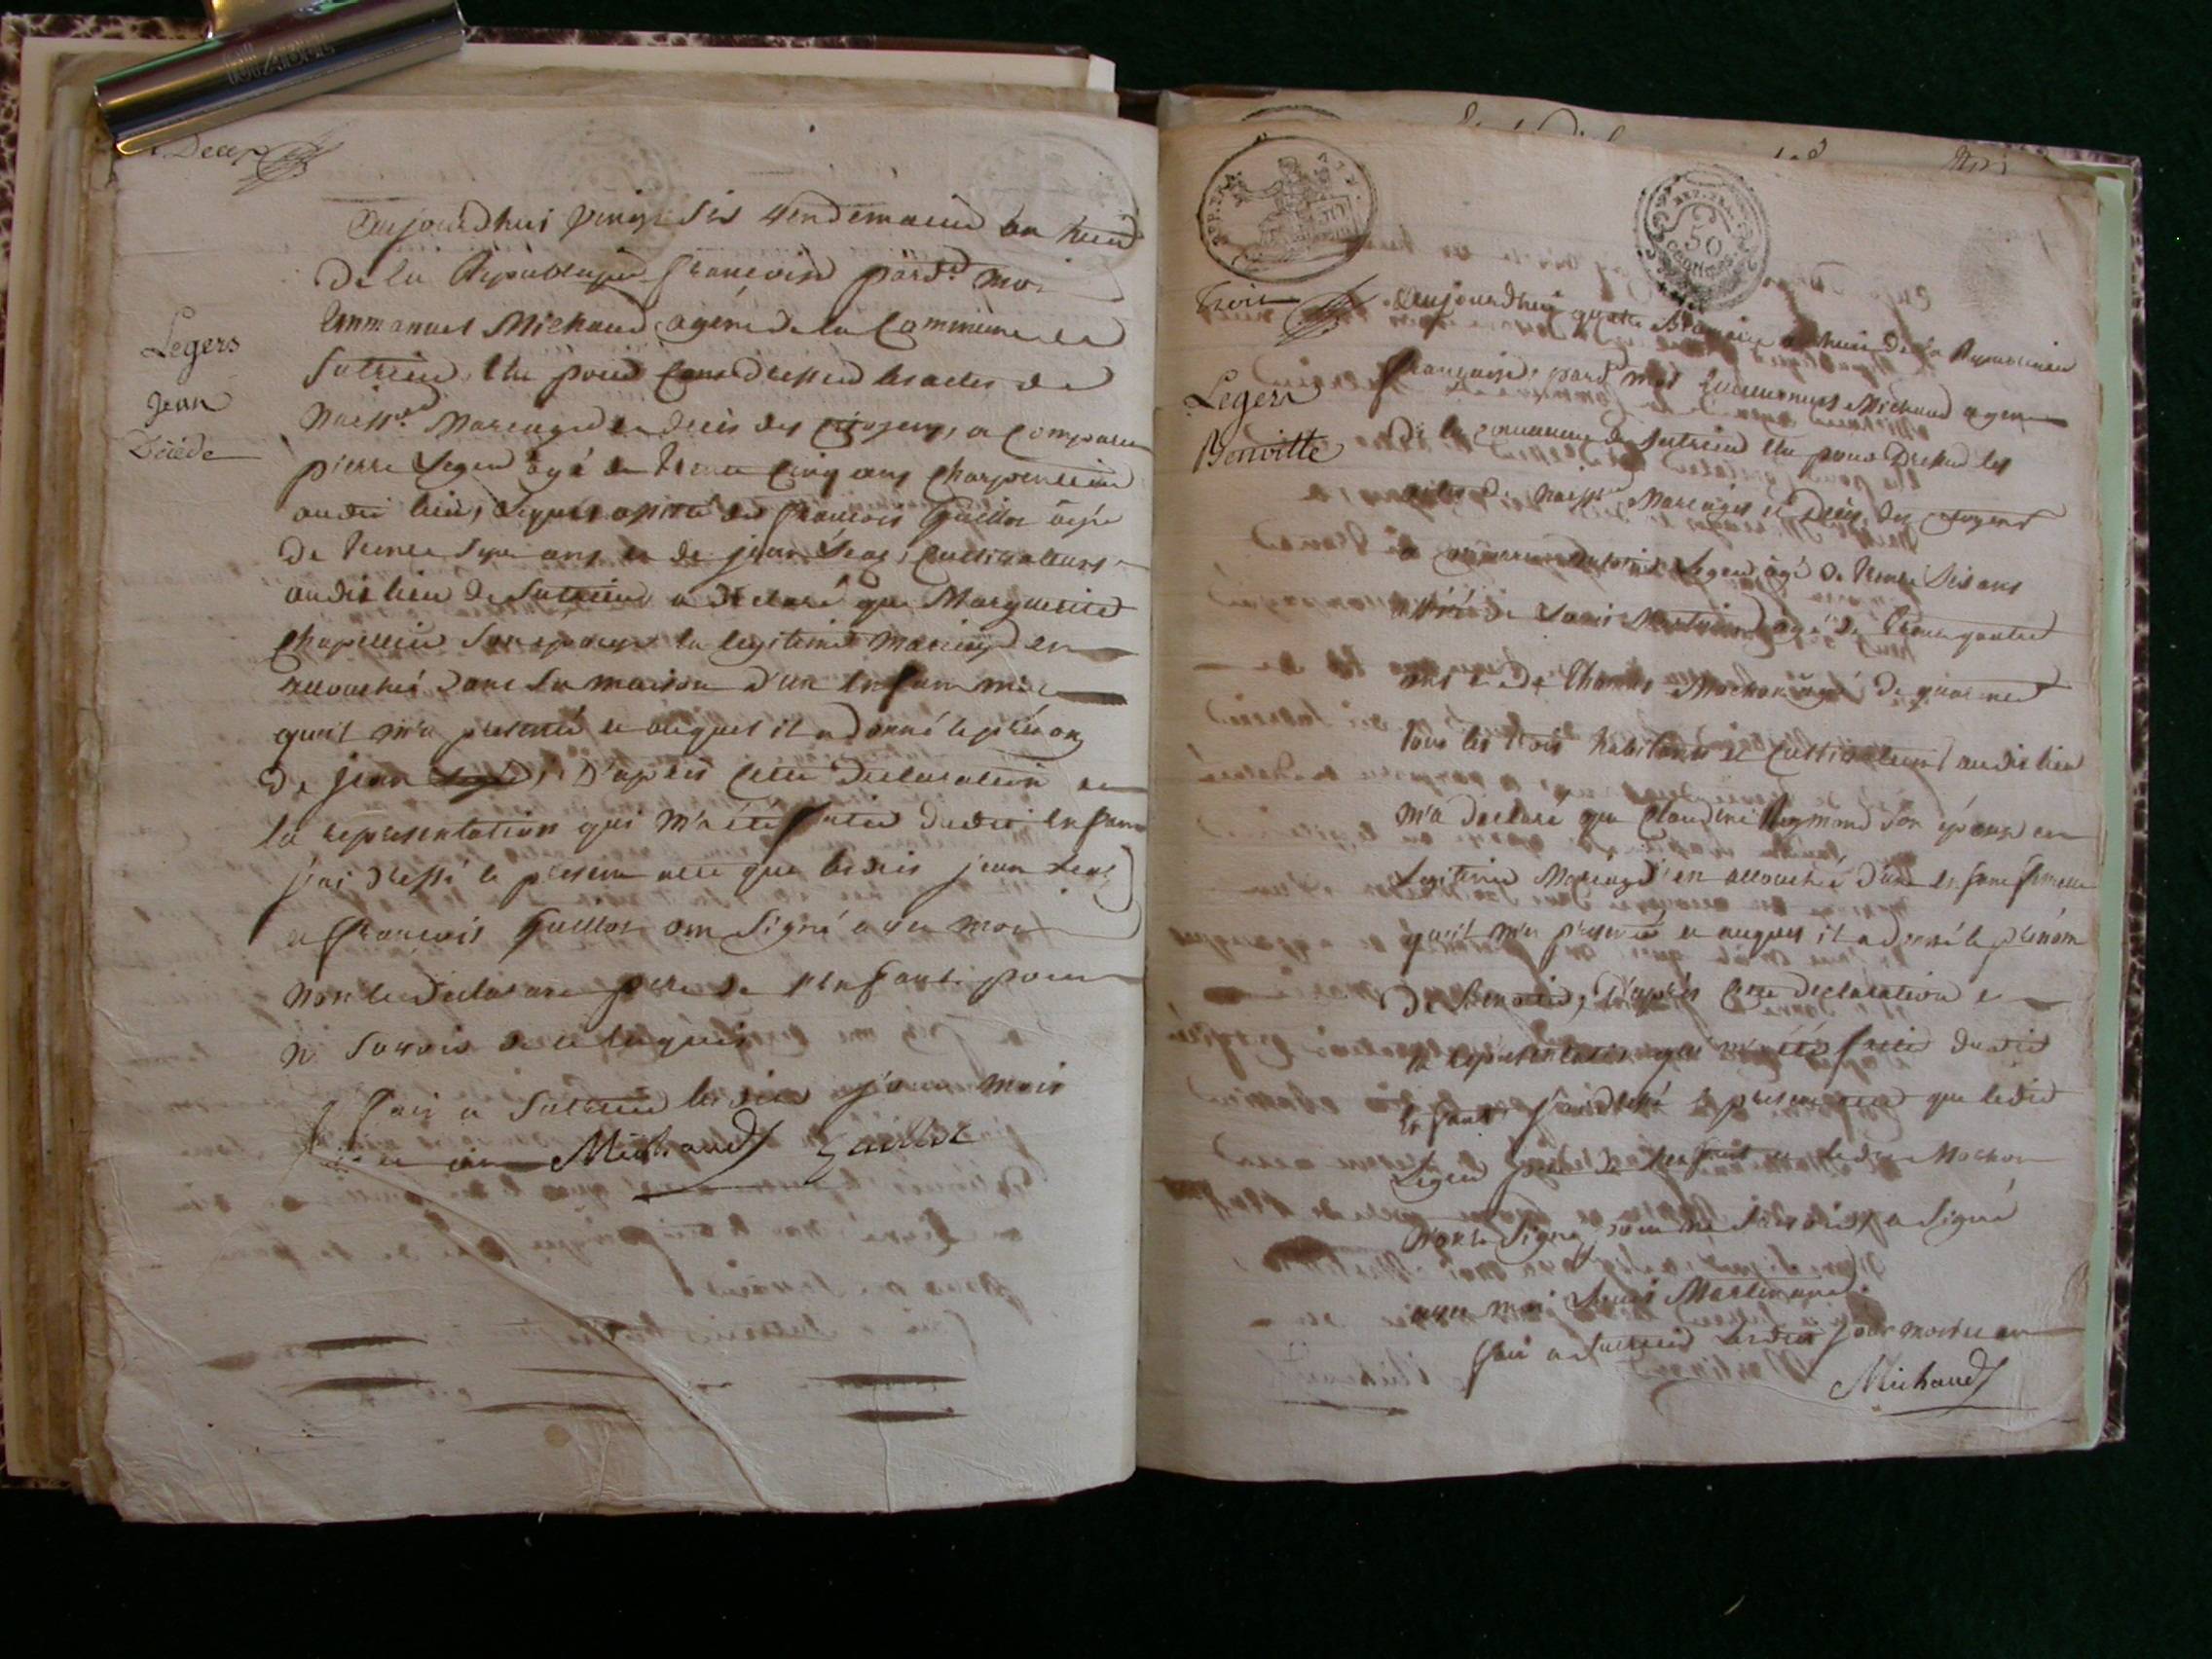 Deux
Aujourdhui vingt Six vendemaire an huit
De la Republique françoise pard.t moi
Emmanuel Michaud agent de la Commune de
Sutrieu, Elu pour dresser les actes de
Naiss.ce Mariage et decès des citoyens, a comparu
pierre Leger âgé de trente Cinq ans charpentier
audit lieu, lequel assisté de françois Guillot âgé
De trente Sept ans et de jean, Cultivateurs
audit lieu de Sutrieu a déclaré que Marguerite
Chapellier Son epouse en legitime mariage est
accouchée dans Sa maison d'un Enfant mâle
qu'il m'a presenté et auquel il a donné le prénom
De jean, D'après cette declaration et
la representation qui m'a été faite dudit Enfant
j'ai dressé le present acte que lesdits jean
et françois Guillot ont Signé avec moi
non le declarant pere de l'enfant pour
ne Savoir de ce requis
fait a Sutrieu lesdits jour mois
et an Michaud Guillot
Legers
Jean
Décédé
REP. FRA.
REP. FRA.
50
CENTIMES
Trois
Aujourdhui quatre Brumaire an huit de la Republique
françoise, pard.t moi Emmanuel Michaud agent
De la commune de Sutrieu Elu pour Dresser les
actes de Naiss.ce Mariages et Decès des citoyens
a comparu Leger âgé De trente Six ans
assisté de Louis Martinand âgé de trente quatre
ans et de Thomas Mochon âgé de quarante
tous les trois habitants et Cultivateurs audit lieu
m'a declaré que Claudine Reymond Son épouse en
Legitime Mariage est accouchée d'un Enfant femelle
qu'il m'a presenté et auquel il a donné le prénom
De Benoite, D'après Cette declaration et
la representation qui m'a été faite dudit
Enfant j'ai dressé le present acte que ledit
Leger pere de l'enfant et ledit Mochon
n'ont Signé pour ne Savoir, a Signé
avec moi Louis Martinand.
fait a Sutrieu lesdits jour mois et an
Michaud
Legers
Benoitte